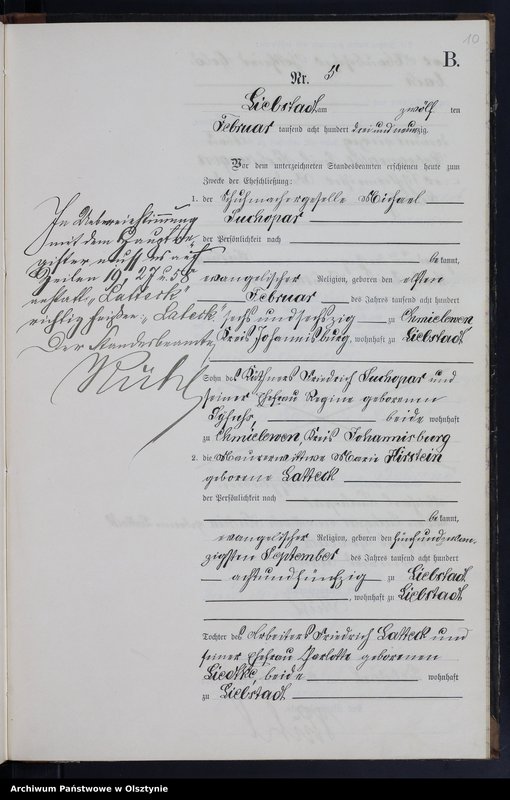 10
B.
Nr. 5
Liebstadt am zwölf ten
Februar tausend acht hundert dreiundneunzig.
Vor dem unterzeichneten Standesbeamten erschienen heute zum
Zwecke der Eheschließung:
1. der Schuhmachergeselle Michael
Suchopar
der Persönlichkeit nach
bekannt,
evangelischer Religion, geboren den elften
Februar des Jahres tausend acht hundert
sechsundsechszig zu Chmielewen
Kreis Johannisburg, wohnhaft zu Liebstadt
Sohn des Käthners Friedrich Suchopar und
seiner Ehefrau Regine geborenen
beide wohnhaft
zu Chmielewen, Kreis Johannisburg
2. die Maurerwittwe Marie Hirstein
geborene Latteck
der Persönlichkeit nach
bekannt,
evangelischer Religion, geboren den fünfundzwan-
zigsten September des Jahres tausend acht hundert
achtundfünfzig zu Liebstadt
, wohnhaft zu Liebstadt
Tochter des Arbeiters Friedrich Latteck und
seiner Ehefrau Charlotte geborenen
Liedtke, beide wohnhaft
zu Liebstadt
In Uebereinstimmung
mit dem Hauptre-
gister muss es auf
Zeilen 19, 27 u. 58
anstatt: „Latteck"
richtig heißen: „Lateck"
Der Standesbeamte
Archiwum Państwowe w Olsztynie